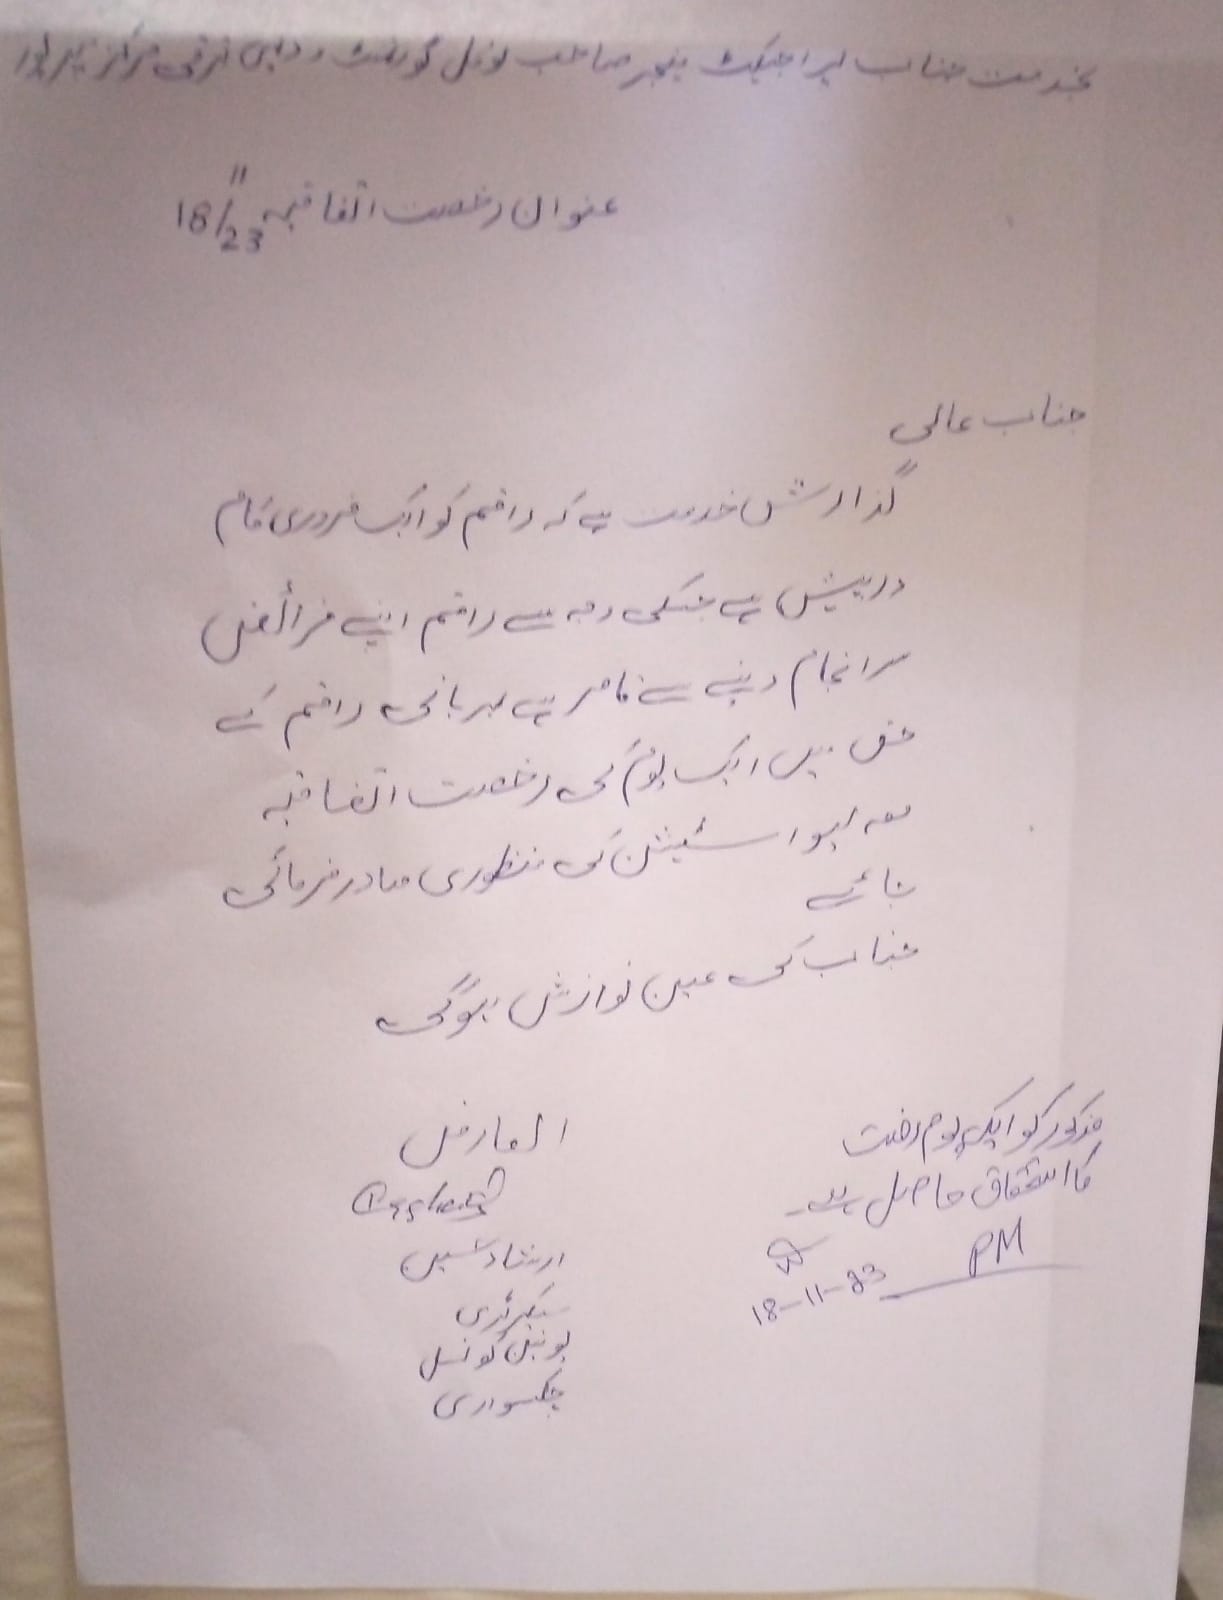 بخدمت جناب پراجیکٹ منیجر صاحب لوکل گورنمنٹ و دیہی ترقی مرکز
عنوان رخصت اتفاقیہ 18/11/23
جناب عالی
گذارش خدمت ہے کہ راقم کو ایک ضروری کام
درپیش ہے جسکی وجہ سے راقم اپنے فرائض
سرانجام دینے سے قاصر ہے مہربانی راقم کے
حق میں ایک یوم کی رخصت اتفاقیہ
معہ اسٹیشن کی منظوری صادر فرمائی
جائے
جناب کی عین نوازش ہوگی
العارض
ارشاد حسین
سیکرٹری
یونین کونسل
چکسواری
مذکور کو ایک یوم رخصت
کا استحقاق حاصل ہے۔
PM
18-11-23